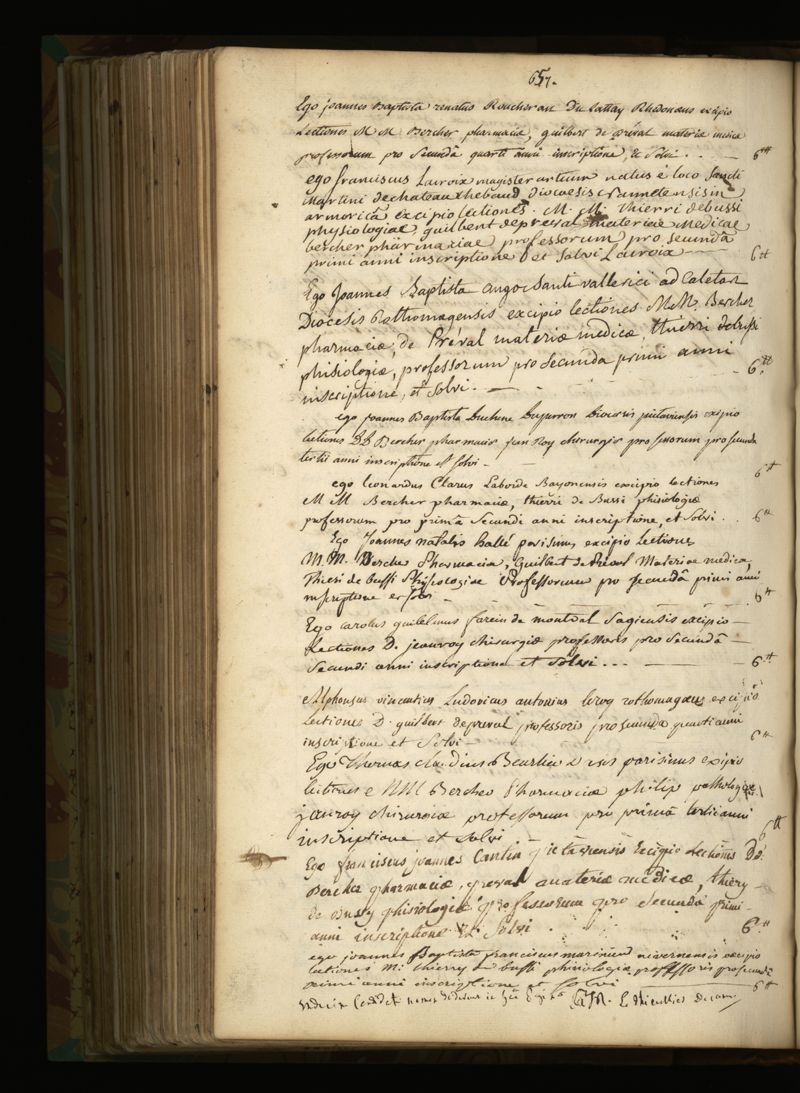 657.
Ego joannes Baptista renatus Roucheran Du Lattay Rhedonæus excipio
Lectiones M M Bercher pharmaciæ, guilbert de préval materiæ medicæ
professorum pro Secundâ quarti anni inscriptione, et Solvi . . — 6tt
ego franciscus Lacroix magister artium natus è loco Sancti
Martini de chateau thebaud dioecesis nannetensis in
armoricâ excipio lectiones. M. M. Thierri de bussi
physiologiae, guilbert de preval materiae medicae
bercher pharmaxiae professorum pro secundâ
primi anni inscriptione et solvi Lacroix — 6tt
Ego Joannes Baptista angoc Santi vallerici ad Caletar
Diocesis Rothomagensis excipio lectiones M.M. Bercher
pharmaciæ, de Préval materiæ medicæ, thierri debussi
phisiologiæ, professorum pro secunda primi anni
inscriptione, et solvi. — — 6.tt
ego joannes Baptista Duchene Dioecesis pictaviensis excipio
lectiones DD Bercher pharmaciæ Jean Roy chirurgiæ professorum pro secunda
tertii anni inscriptione et solvi — 6tt
ego leonardus Clarus Laborde Bayonensis excipio lectiones
M M Bercher pharmaciæ, thierri de Bussi phisiologiæ
professorum pro primâ secundi anni inscriptione, et solvi . . 6tt
Ego Joannes natalis hallé parisinus excipio Lectiones
M. M. Bercher Pharmaciæ, Guilbert de Préval Materiae medicæ,
Thieri de bussi Physiologiae Professorum pro secundâ primi anni
inscriptione et solvi — 6tt
Ego carolus guilelmus farein de montval Sagiensis excipio —
Lectiones D. jeanroy chirurgiæ professoris pro Secundâ —
Secundi anni inscriptione et solvi . . . — 6tt
Alphonsus vincentius Ludovicus antonius leroy rothomagæus excipio
lectiones D. guilbert de preval professoris pro secunda quarti anni
inscriptione et Solvi — 6tt
Ego Thomas claudius parisinus excipio
lectiones MM Bercher Pharmaciæ philip pathologiæ
jeanroy chirurgiæ professorum pro primâ tertii anni
inscriptione et solvi — 6tt
Ego franciscus joannes Cantin pictaviensis Excipio Lectiones DD.
Bercher pharmaciæ, preval materiæ médicæ, thiery
de Bussy phisiologiæ professorum pro Secundâ primi
anni inscriptione et Solvi . . . 6tt
ego joannes Baptista franciscus nivernensis excipio
lectiones M. thierry de bussi phisiologiæ professoris pro secundâ
primi anni inscriptione et solvi 6tt
L. P. F. R. Le Thieullier Decanus